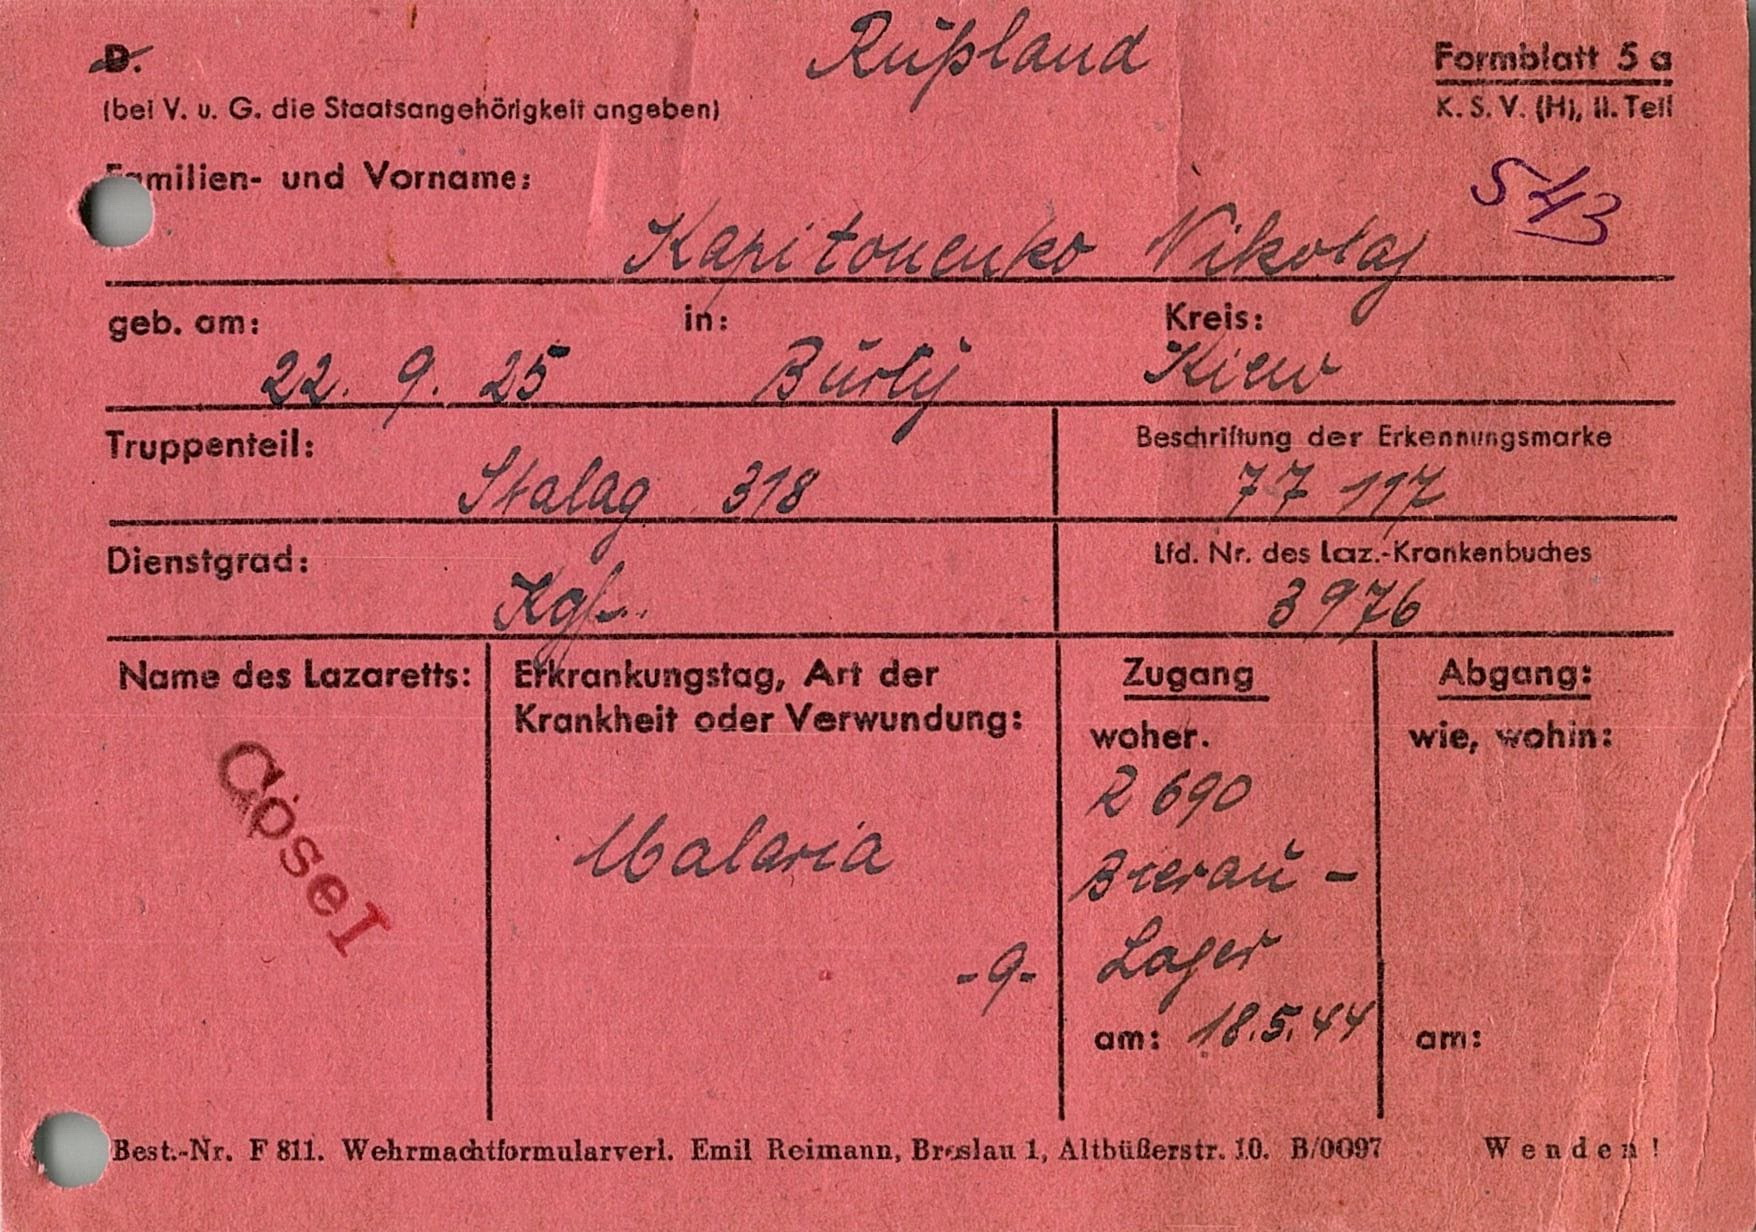 D. Rußland Formblatt 5 a
(bei V. u. G. die Staatsangehörigkeit angeben) K. S. V. (H), II. Teil
Familien- und Vorname:
Kapitonenko Nikolaj
geb. am: in: Kreis:
22. 9. 25 Burlij Kiew
Truppenteil: Beschriftung der Erkennungsmarke
Stalag 318 77 117
Dienstgrad: Lfd. Nr. des Laz.-Krankenbuches
Kgf. 3976
Name des Lazaretts:
Cosel
Erkrankungstag, Art der
Krankheit oder Verwundung:
Malaria
-9-
Zugang
woher.
R 690
Bierau -
Lager
am: 18.5.44
Abgang:
wie, wohin:
am:
Best.-Nr. F 811. Wehrmachtformularverl. Emil Reimann, Breslau 1, Altbüßerstr. 10. B/0097 Wenden!